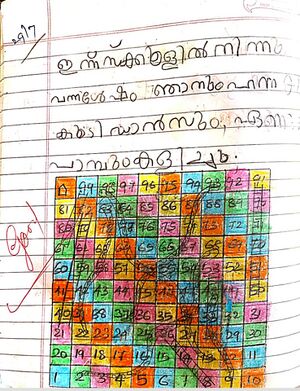 ഇന്ന് സ്കൂളിൽ നിന്നും
വന്നശേഷം ഞാനും ഹന്ന
കൂടി ഡാൻസും, ഏണി
പാമ്പും കളിച്ചു.
Good
99 98 97 96 95 94 93 92 91
81 82 83 84 85 86 87 88 89 90
80 79 78 77 76 75 74 73 72 71
61 62 63 64 65 66 67 68 69 70
60 59 58 57 56 55 54 53 52 51
41 42 43 44 45 46 47 48 49 50
40 39 38 37 36 35 34 33 32 31
21 22 23 24 25 26 27 28 29 30
20 19 18 17 16 15 14 13 12 11
1 2 3 4 5 6 7 8 9 10